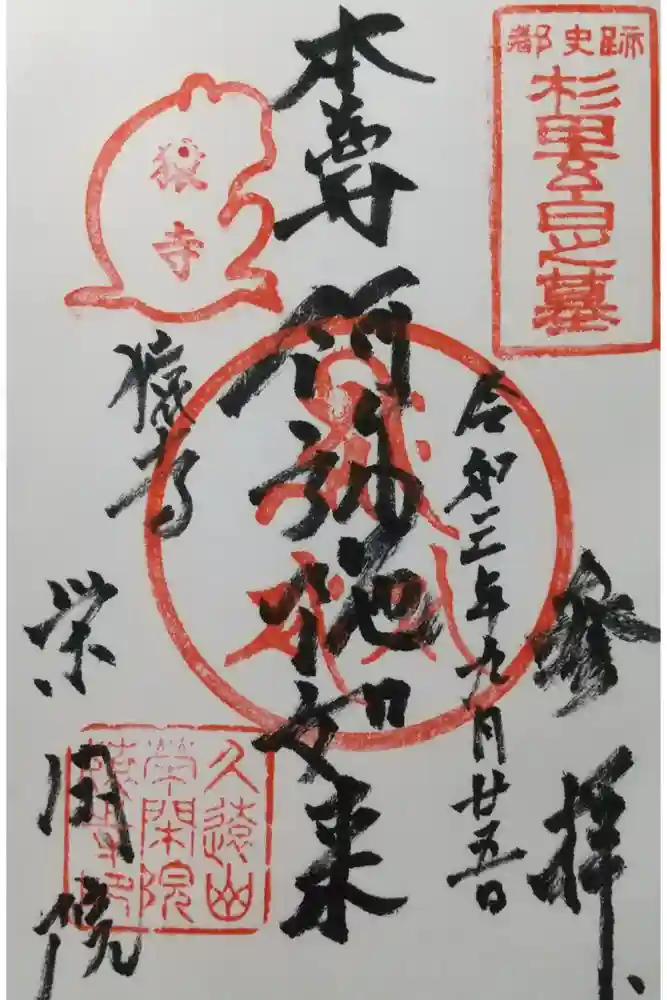 都史跡
杉田玄白之墓
参拝
令和三年九月廿五日
本尊
阿弥陀如来
猿寺
猿寺
栄閑院
久遠山
榮閑院
猿寺印